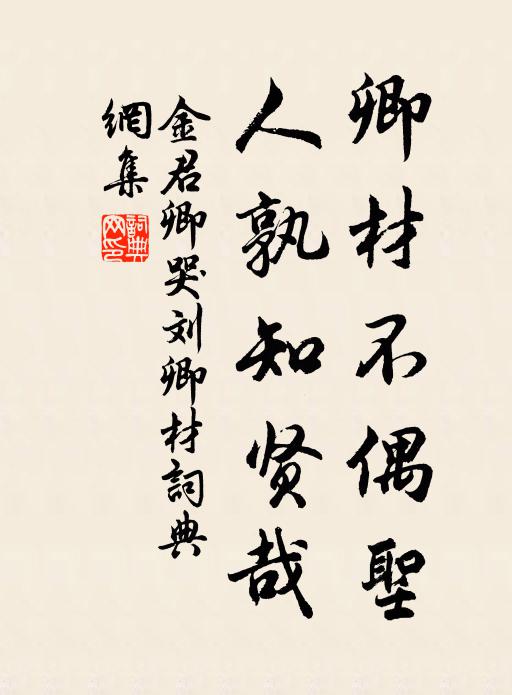 卿材不偶聖
人孰知贤哉
金君卿哭刘卿材詞典
網集
詞典
网印